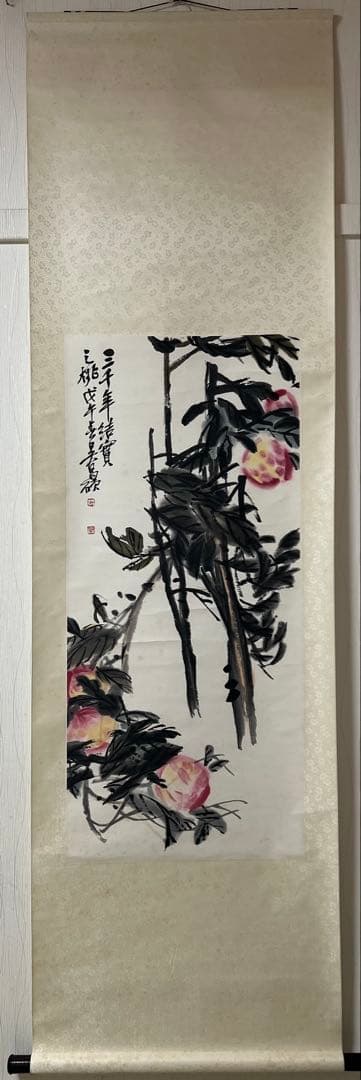 三千年結實
之桃戊午春吳昌碩